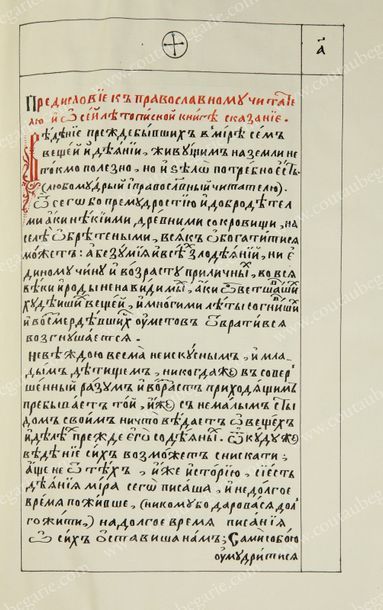 а҃
Предисловїе къ православному читате
лю и ѡ сей лѣтописной книгѣ сказанїе.
Вѣдѣнїе преждебывшихъ в̾ мїрѣ семъ
вещей и дѣянїи, живущимъ на земли не
токмо полезно, но и ѕѣлѡ потребно есть
(любомудрый и православный читателю).
Ѿ сегѡ бо премудростїю и добродѣтел
ми аки нѣкїими древними сокровищи, на
селѣ ѡбрѣтеными, всякъ ѡбогатитися
можетъ: а безумїя и всѣхъ злодѣянїй, ни е
диному чину и возрасту приличны, во вся
вѣки и роды ненавидимы, аки ѡбетшавши
худѣйши вещей, и многими лѣты согнивши
и восмердѣвшихъ ѹметовъ ѿвратився
возгнушается.
Невѣждою весма неискуснымъ, и мла
дымъ дѣтищемъ, никогдаже въ совер
шенный разумъ и возрастъ приходящимъ
пребываетъ той, иже съ немалымъ сты
домъ своимъ ничто вѣдаетъ ѡ вещехъ
и дѣлѣхъ прежде его содѣяны. Ѿкудуже
вѣдѣнїе сихъ возможетъ снискати;
аще не ѿ тѣхъ, иже исторїю, сіесть
дѣянїя мїра сегѡ писаша, и не долгое
время поживше, (никому бо даровася дол
го жити,) на долгое время писанїя
ѡ сихъ ѡставиша намъ; Сами собою
ѹмудритися
www.coutaubegarie.com